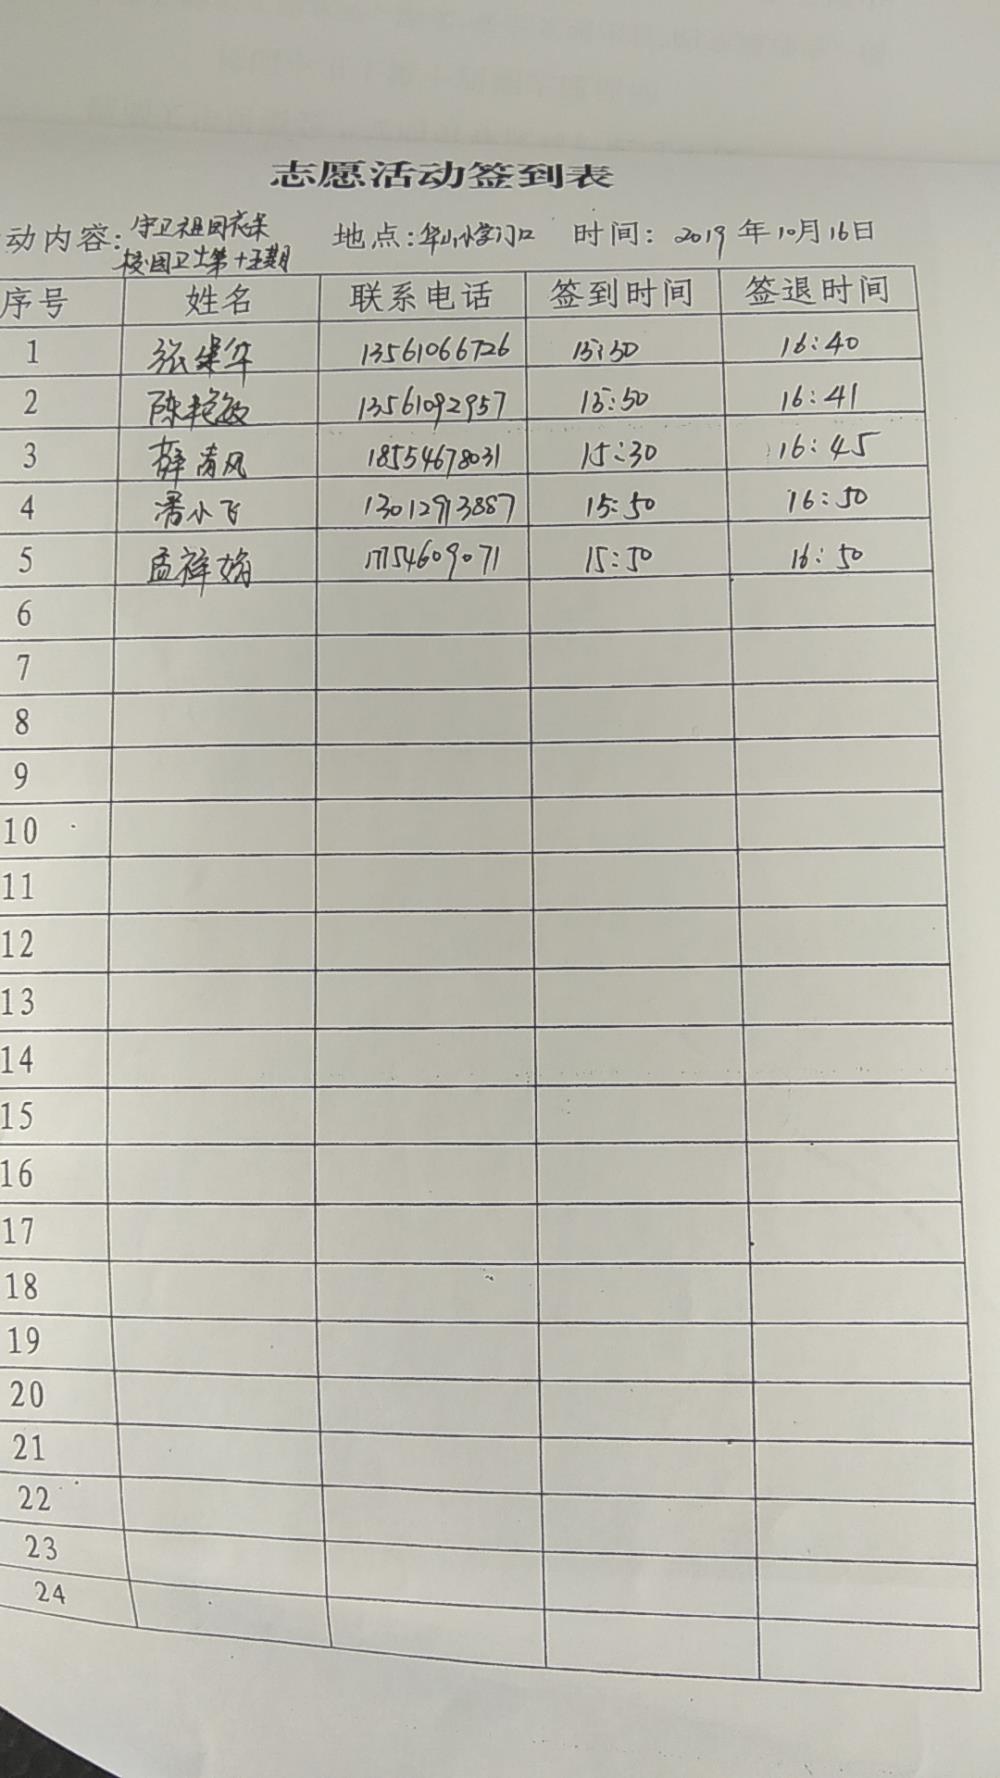 志愿活动签到表
动内容:守卫祖国未来 地点:华山小学门口 时间: 2019年10月16日
校园卫士第十五期
序号 姓名 联系电话 签到时间 签退时间
1 张建华 13561066726 15:30 16:40
2 陈艳敏 13561092957 15:50 16:41
3 薛清风 18554678031 15:30 16:45
4 潘小飞 13012913887 15:50 16:50
5 孟祥娟 17154609071 15:50 16:50
6
7
8
9
10
11
12
13
14
15
16
17
18
19
20
21
22
23
24